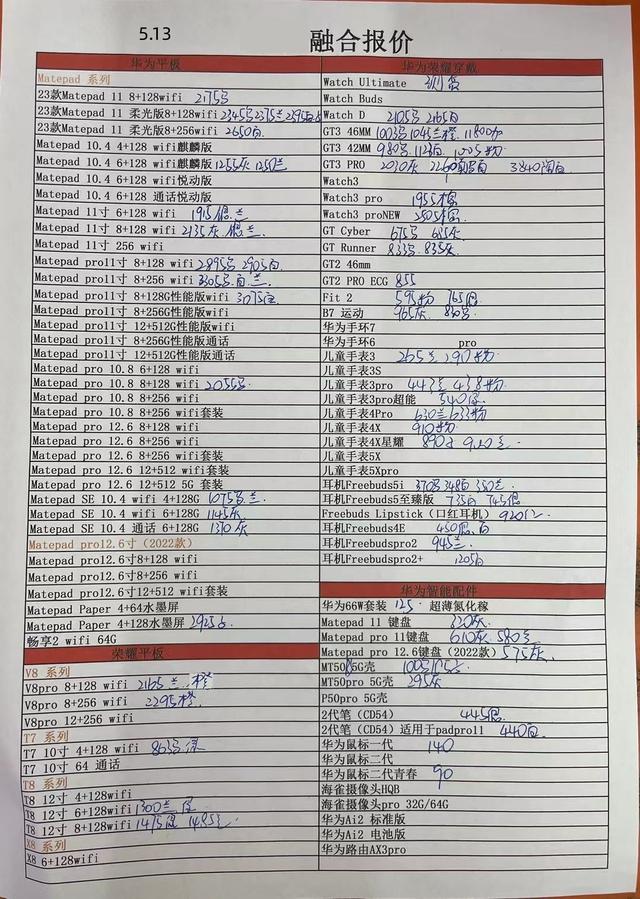 5.13
融合报价
华为平板
Matepad 系列
23款Matepad 11 8+128wifi 2175
23款Matepad 11 柔光版8+128wifi 2345 2375兰
23款Matepad 11 柔光版8+256wifi 2650白
Matepad 10.4 4+128 wifi麒麟版
Matepad 10.4 6+128 wifi麒麟版 1255灰 1250兰
Matepad 10.4 6+128 wifi悦动版
Matepad 10.4 6+128 通话悦动版
Matepad 11寸 6+128 wifi 1915银 兰
Matepad 11寸 8+128 wifi 2135灰 银 兰
Matepad 11寸 256 wifi
Matepad pro11寸 8+128 wifi 2895 2905白
Matepad pro11寸 8+256 wifi 3305 白 兰
Matepad pro11寸 8+128G性能版wifi 3075
Matepad pro11寸 8+256G性能版wifi
Matepad pro11寸 12+512G性能版wifi
Matepad pro11寸 8+256G性能版通话
Matepad pro11寸 12+512G性能版通话
Matepad pro 10.8 6+128 wifi
Matepad pro 10.8 8+128 wifi 2055
Matepad pro 10.8 8+256 wifi
Matepad pro 10.8 8+256 wifi套装
Matepad pro 12.6 8+128 wifi
Matepad pro 12.6 8+256 wifi
Matepad pro 12.6 8+256 wifi套装
Matepad pro 12.6 12+512 wifi套装
Matepad pro 12.6 12+512 5G 套装
Matepad SE 10.4 wifi 4+128G 1075 兰
Matepad SE 10.4 wifi 6+128G 1145灰
Matepad SE 10.4 通话 6+128G 1310灰
Matepad pro12.6寸（2022款）
Matepad pro12.6寸8+128 wifi
Matepad pro12.6寸8+256 wifi
Matepad pro12.6寸12+512 wifi套装
Matepad Paper 4+64水墨屏
Matepad Paper 4+128水墨屏 2925
畅享2 wifi 64G
荣耀平板
V8 系列
V8pro 8+128 wifi 2165 兰
V8pro 8+256 wifi 2295
V8pro 12+256 wifi
T7 系列
T7 10寸 4+128 wifi
T7 10寸 64 通话
T8 系列
T8 12寸 4+128wifi
T8 12寸 6+128wifi 1300兰
T8 12寸 8+128wifi 1475
X8 系列
X8 6+128wifi
华为荣耀穿戴
Watch Ultimate
Watch Buds
Watch D 2105 2165白
GT3 46MM
GT3 42MM
GT3 PRO 2030灰
Watch3
Watch3 pro 1955
Watch3 proNEW 2505
GT Cyber 675 685灰
GT Runner 833 835灰
GT2 46mm
GT2 PRO ECG 855
Fit 2 595粉 765银
B7 运动 965灰
华为手环7
华为手环6 pro
儿童手表3 265兰
儿童手表3S
儿童手表3pro 438粉
儿童手表3pro超能 540
儿童手表4Pro 630兰 633粉
儿童手表4X 910粉
儿童手表4X星耀 890
儿童手表5X
儿童手表5Xpro
耳机Freebuds5i 348白 350兰
耳机Freebuds5至臻版 735白 745银
Freebuds Lipstick（口红耳机） 920
耳机Freebuds4E 450银 白
耳机Freebudspro2 945兰
耳机Freebudspro2+ 1205白
华为智能配件
华为66W套装 125 超薄氮化稼
Matepad 11 键盘 灰
Matepad pro 11键盘 610灰 580兰
Matepad pro 12.6键盘（2022款） 575灰
MT50 5G壳
MT50pro 5G壳 295灰
P50pro 5G壳
2代笔（CD54） 445银
2代笔（CD54）适用于padpro11 440白
华为鼠标一代 140
华为鼠标二代
华为鼠标二代青春 90
海雀摄像头HQB
海雀摄像头pro 32G/64G
华为Ai2 标准版
华为Ai2 电池版
华为路由AX3pro